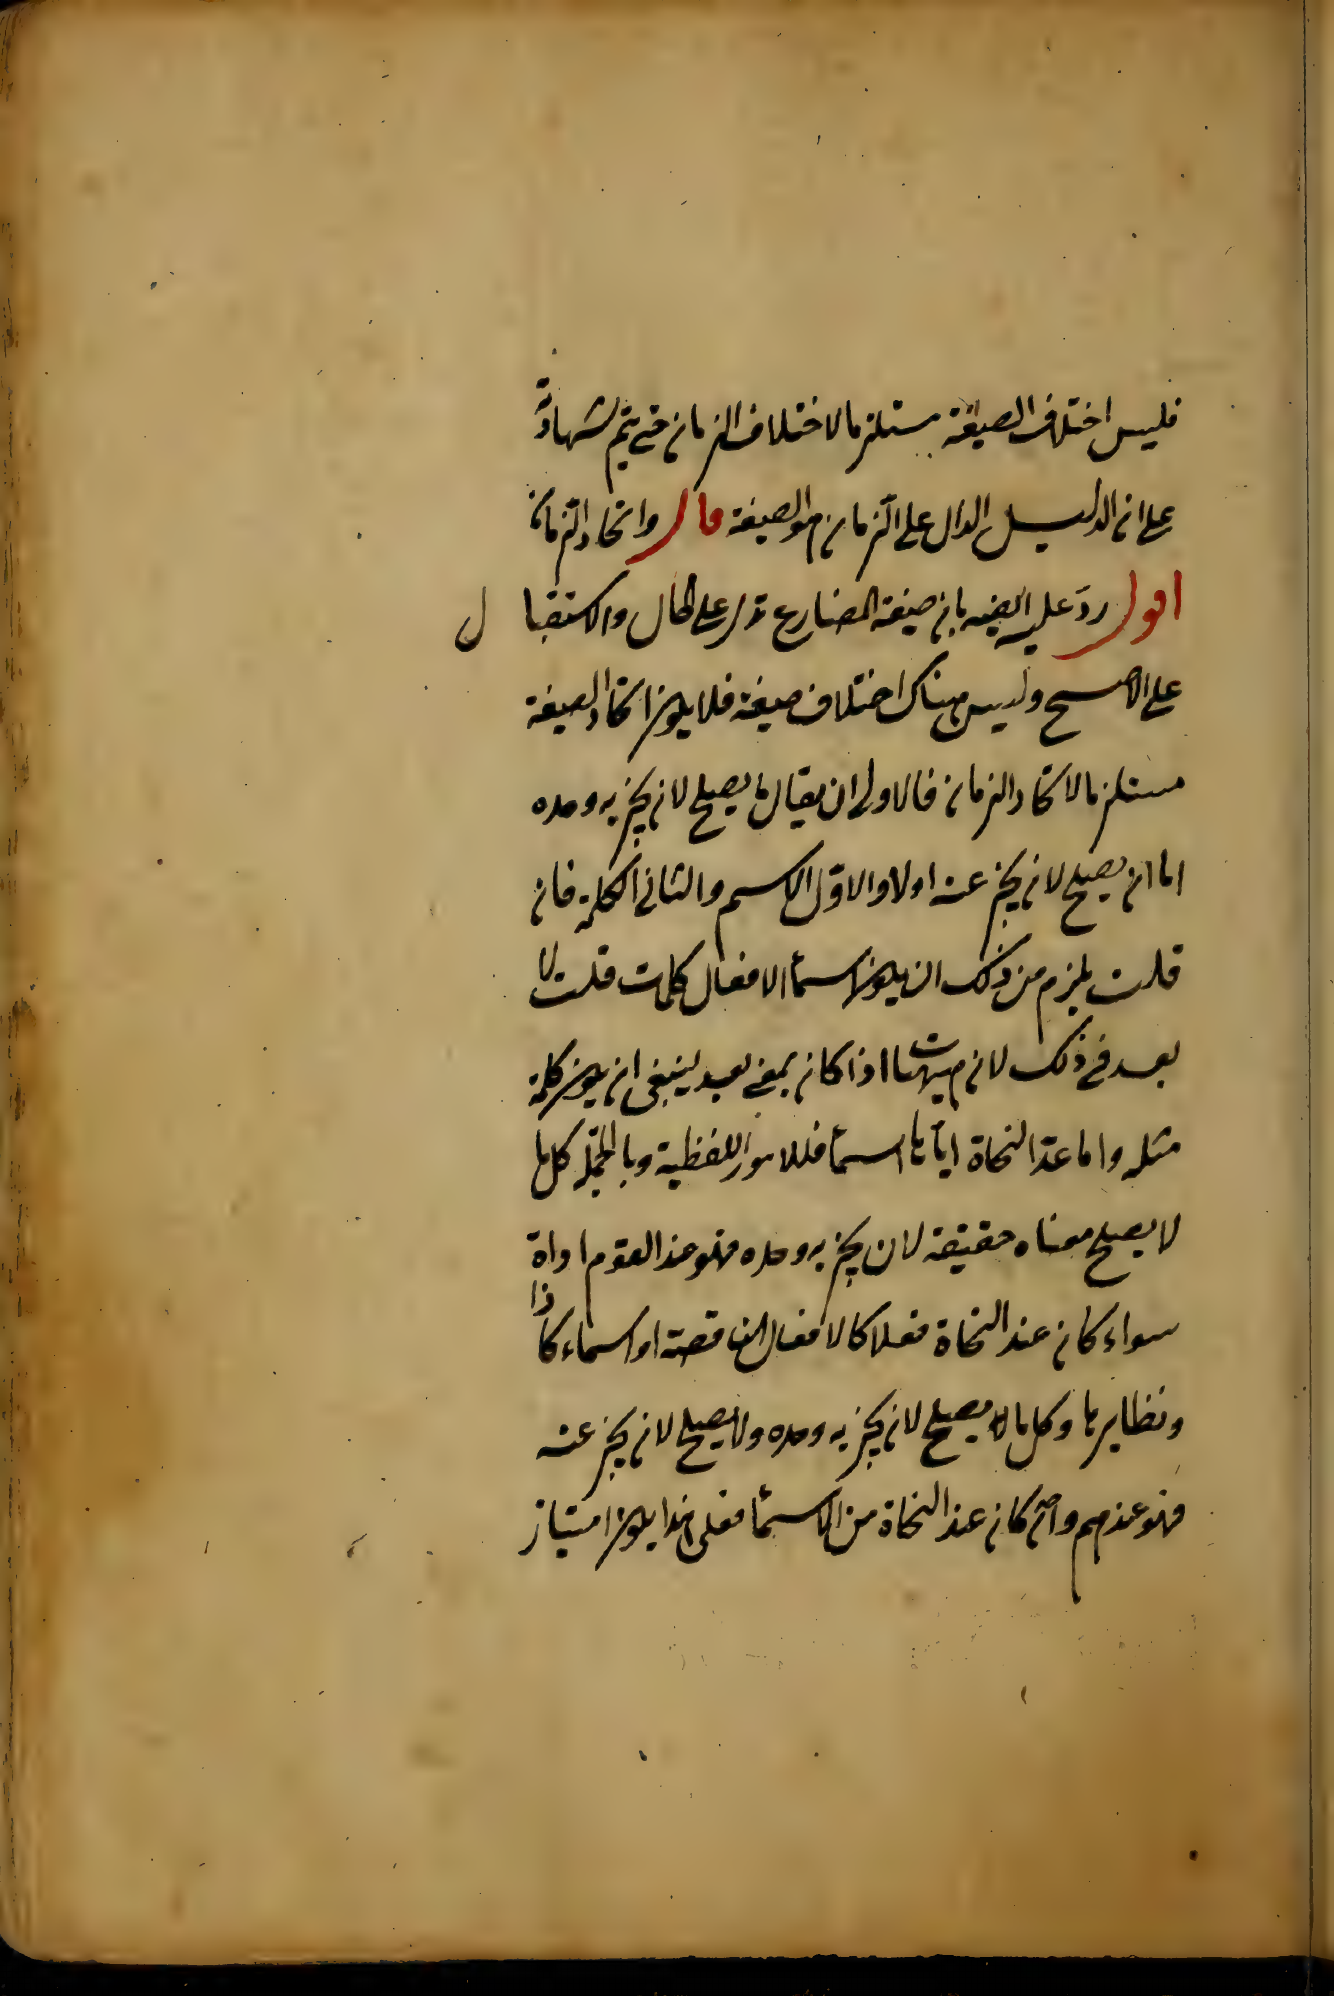 فليس اختلاف الصيغة مستلزما لاختلاف الزمان حتى يتم لشهادة
على ان الدليل الدال على الزمان هو الصيغة قال واتحاد الزمان
اقول ردّ عليه ايضا بان صيغة المضارع تدل على الحال والاستقبال
على الاصح وليس هناك اختلاف صيغة فلا يكون اتحاد الصيغة
مستلزما لاتحاد الزمان فالاولى ان يقال ما يصلح لان يخبر به وحده
اما ان يصلح لان يخبر عنه اولا والاوّل الاسم والثانى الكلمة فان
قلت يلزم من ذلك ان يكون اسما الافعال كلمات قلت لا
بعد فى ذلك لان هيهات اذا كان بمعنى بعد ينبغى ان يكون كلمة
مثله واما عدّ النحاة اياها اسما فللامور اللفظية وبالجملة كل ما
لا يصلح معناه حقيقة لان يخبر به وحده فهو عند القوم اداة
سواء كان عند النحاة فعلا كالافعال الناقصة او اسماء كاذا
ونظايرها وكل ما لا يصلح لان يخبر به وحده ولا يصلح لان يخبر عنه
فهو عندهم كان عند النحاة من الاسما فعلى هذا يكون امتياز